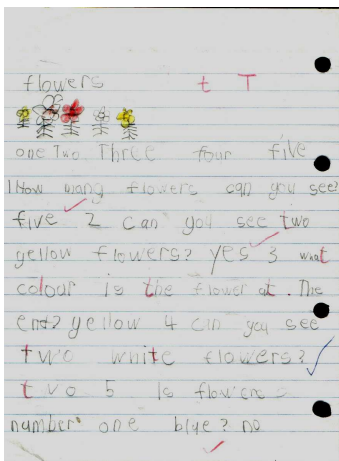 flowers t T
one Two Three four five
1 How many flowers can you see?
five 2 can you see two
yellow flowers? yes 3 what
colour is the flower at . The
end? yellow 4 can you see
two white flowers?
t v o 5 Is flowers
number one blue? no